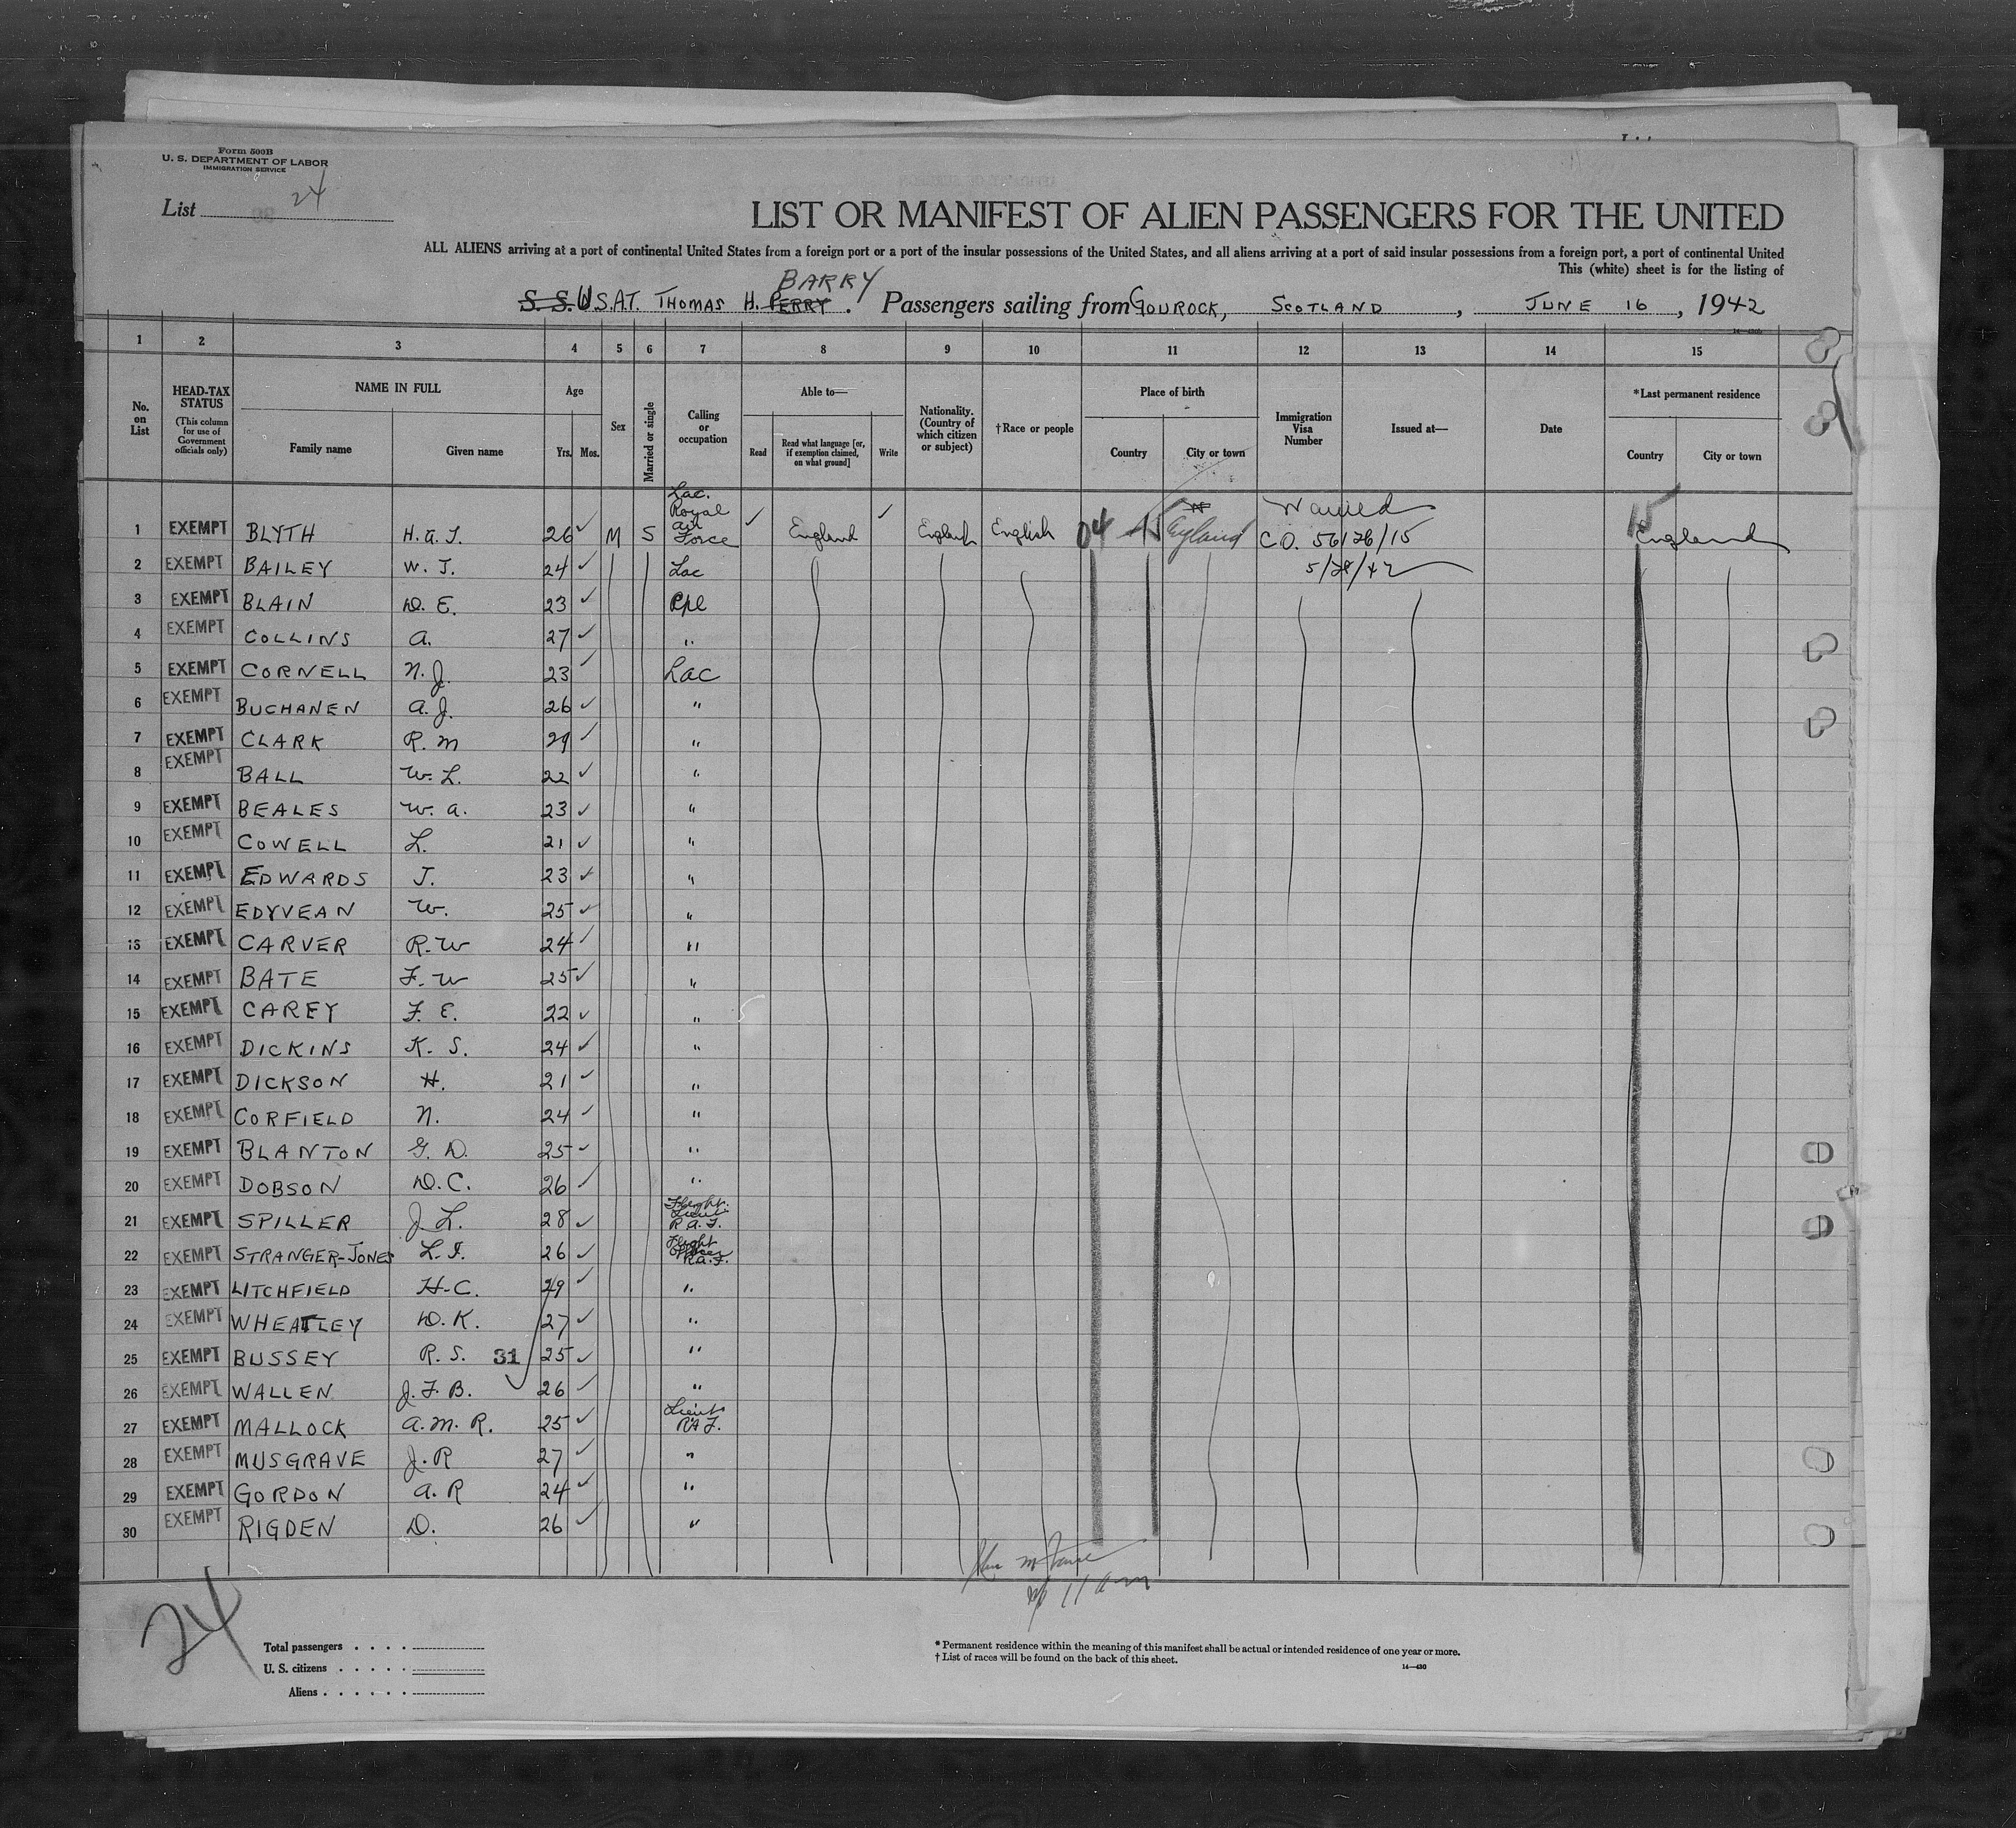 Form 500B
U. S. DEPARTMENT OF LABOR
IMMIGRATION SERVICE
List 24
LIST OR MANIFEST OF ALIEN PASSENGERS FOR THE UNITED
ALL ALIENS arriving at a port of continental United States from a foreign port or a port of the insular possessions of the United States, and all aliens arriving at a port of said insular possessions from a foreign port, a port of continental United
This (white) sheet is for the listing of
BARRY
S. S. U.S.A.T. THOMAS H. PERRY. Passengers sailing from GOUROCK, SCOTLAND, JUNE 16, 1942
1 2 3 4 5 6 7 8 9 10 11 12 13 14 15
No. on List
HEAD-TAX STATUS
(This column for use of Government officials only)
NAME IN FULL
Family name Given name
Age
Yrs. Mos.
Sex
Married or single
Calling or occupation
Able to—
Read Read what language [or, if exemption claimed, on what ground] Write
Nationality. (Country of which citizen or subject)
†Race or people
Place of birth
Country City or town
Immigration Visa Number
Issued at—
Date
*Last permanent residence
Country City or town
1 EXEMPT BLYTH H. A. J. 26 M S Lac. Royal Air Force England England English 04 15 England Waived C.O. 56126/15 15 England
2 EXEMPT BAILEY W. J. 24 Lac 5/28/42
3 EXEMPT BLAIN D. E. 23 Cpl
4 EXEMPT COLLINS A. 27 "
5 EXEMPT CORNELL N. J. 23 Lac
6 EXEMPT BUCHANEN A. J. 26 "
7 EXEMPT CLARK R. M 29 "
8 EXEMPT BALL W. L. 22 "
9 EXEMPT BEALES W. A. 23 "
10 EXEMPT COWELL L. 21 "
11 EXEMPT EDWARDS J. 23 "
12 EXEMPT EDYVEAN W. 25 "
13 EXEMPT CARVER R. W 24 "
14 EXEMPT BATE F. W 25 "
15 EXEMPT CAREY F. E. 22 "
16 EXEMPT DICKINS K. S. 24 "
17 EXEMPT DICKSON H. 21 "
18 EXEMPT CORFIELD N. 24 "
19 EXEMPT BLANTON G. D. 25 "
20 EXEMPT DOBSON D. C. 26 "
21 EXEMPT SPILLER J. L. 28 Flight Lieut R.A.F.
22 EXEMPT STRANGER-JONES L. I. 26 Flight Officer R.A.F.
23 EXEMPT LITCHFIELD H. C. 29 "
24 EXEMPT WHEATLEY D. K. 27 "
25 EXEMPT BUSSEY R. S. 31 25 "
26 EXEMPT WALLEN J. F. B. 26 "
27 EXEMPT MALLOCK A. M. R. 25 Lieut RAF.
28 EXEMPT MUSGRAVE J. R 27 "
29 EXEMPT GORDON A. R 24 "
30 EXEMPT RIGDEN D. 26 "
11 am
24
Total passengers
U. S. citizens
Aliens
* Permanent residence within the meaning of this manifest shall be actual or intended residence of one year or more.
† List of races will be found on the back of this sheet.
14—430